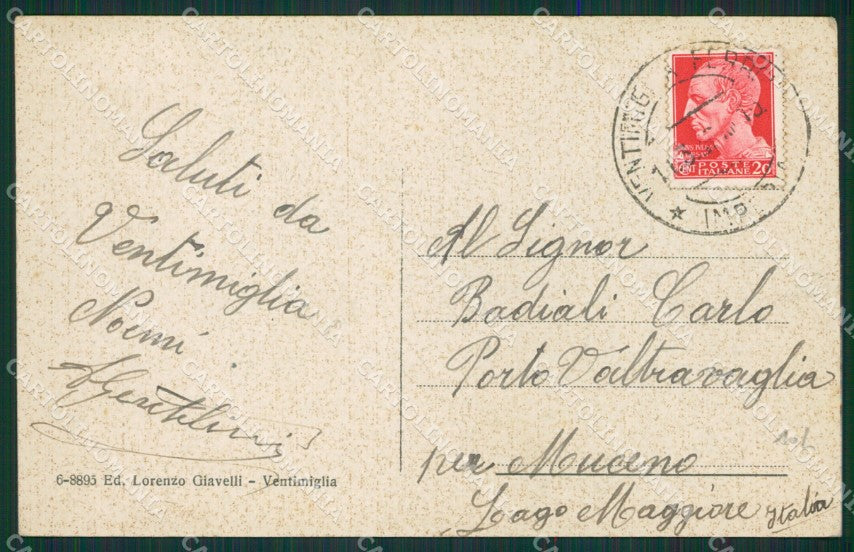 Saluti da
Ventimiglia
Noemi
AGentilini
6-8895 Ed. Lorenzo Giavelli - Ventimiglia
VENTIMIGLIA FERR
IMP
POSTE
ITALIANE
CENT 20
Al Signor
Badiali Carlo
Porto Valtravaglia
per Muceno
Lago Maggiore Italia
CARTOLINOMANIA